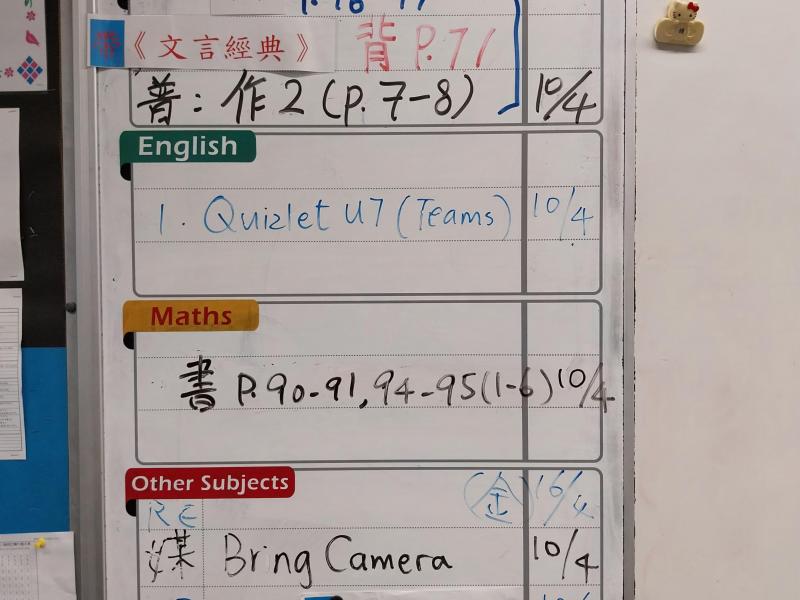 帶《文言經典》 背 P.71
普：作2 (p.7-8) 10/4
English
1. Quizlet U7 (Teams) 10/4
Maths
書 P.90-91, 94-95(1-6) 10/4
Other Subjects
RE (金) 16/4
媒 Bring Camera 10/4